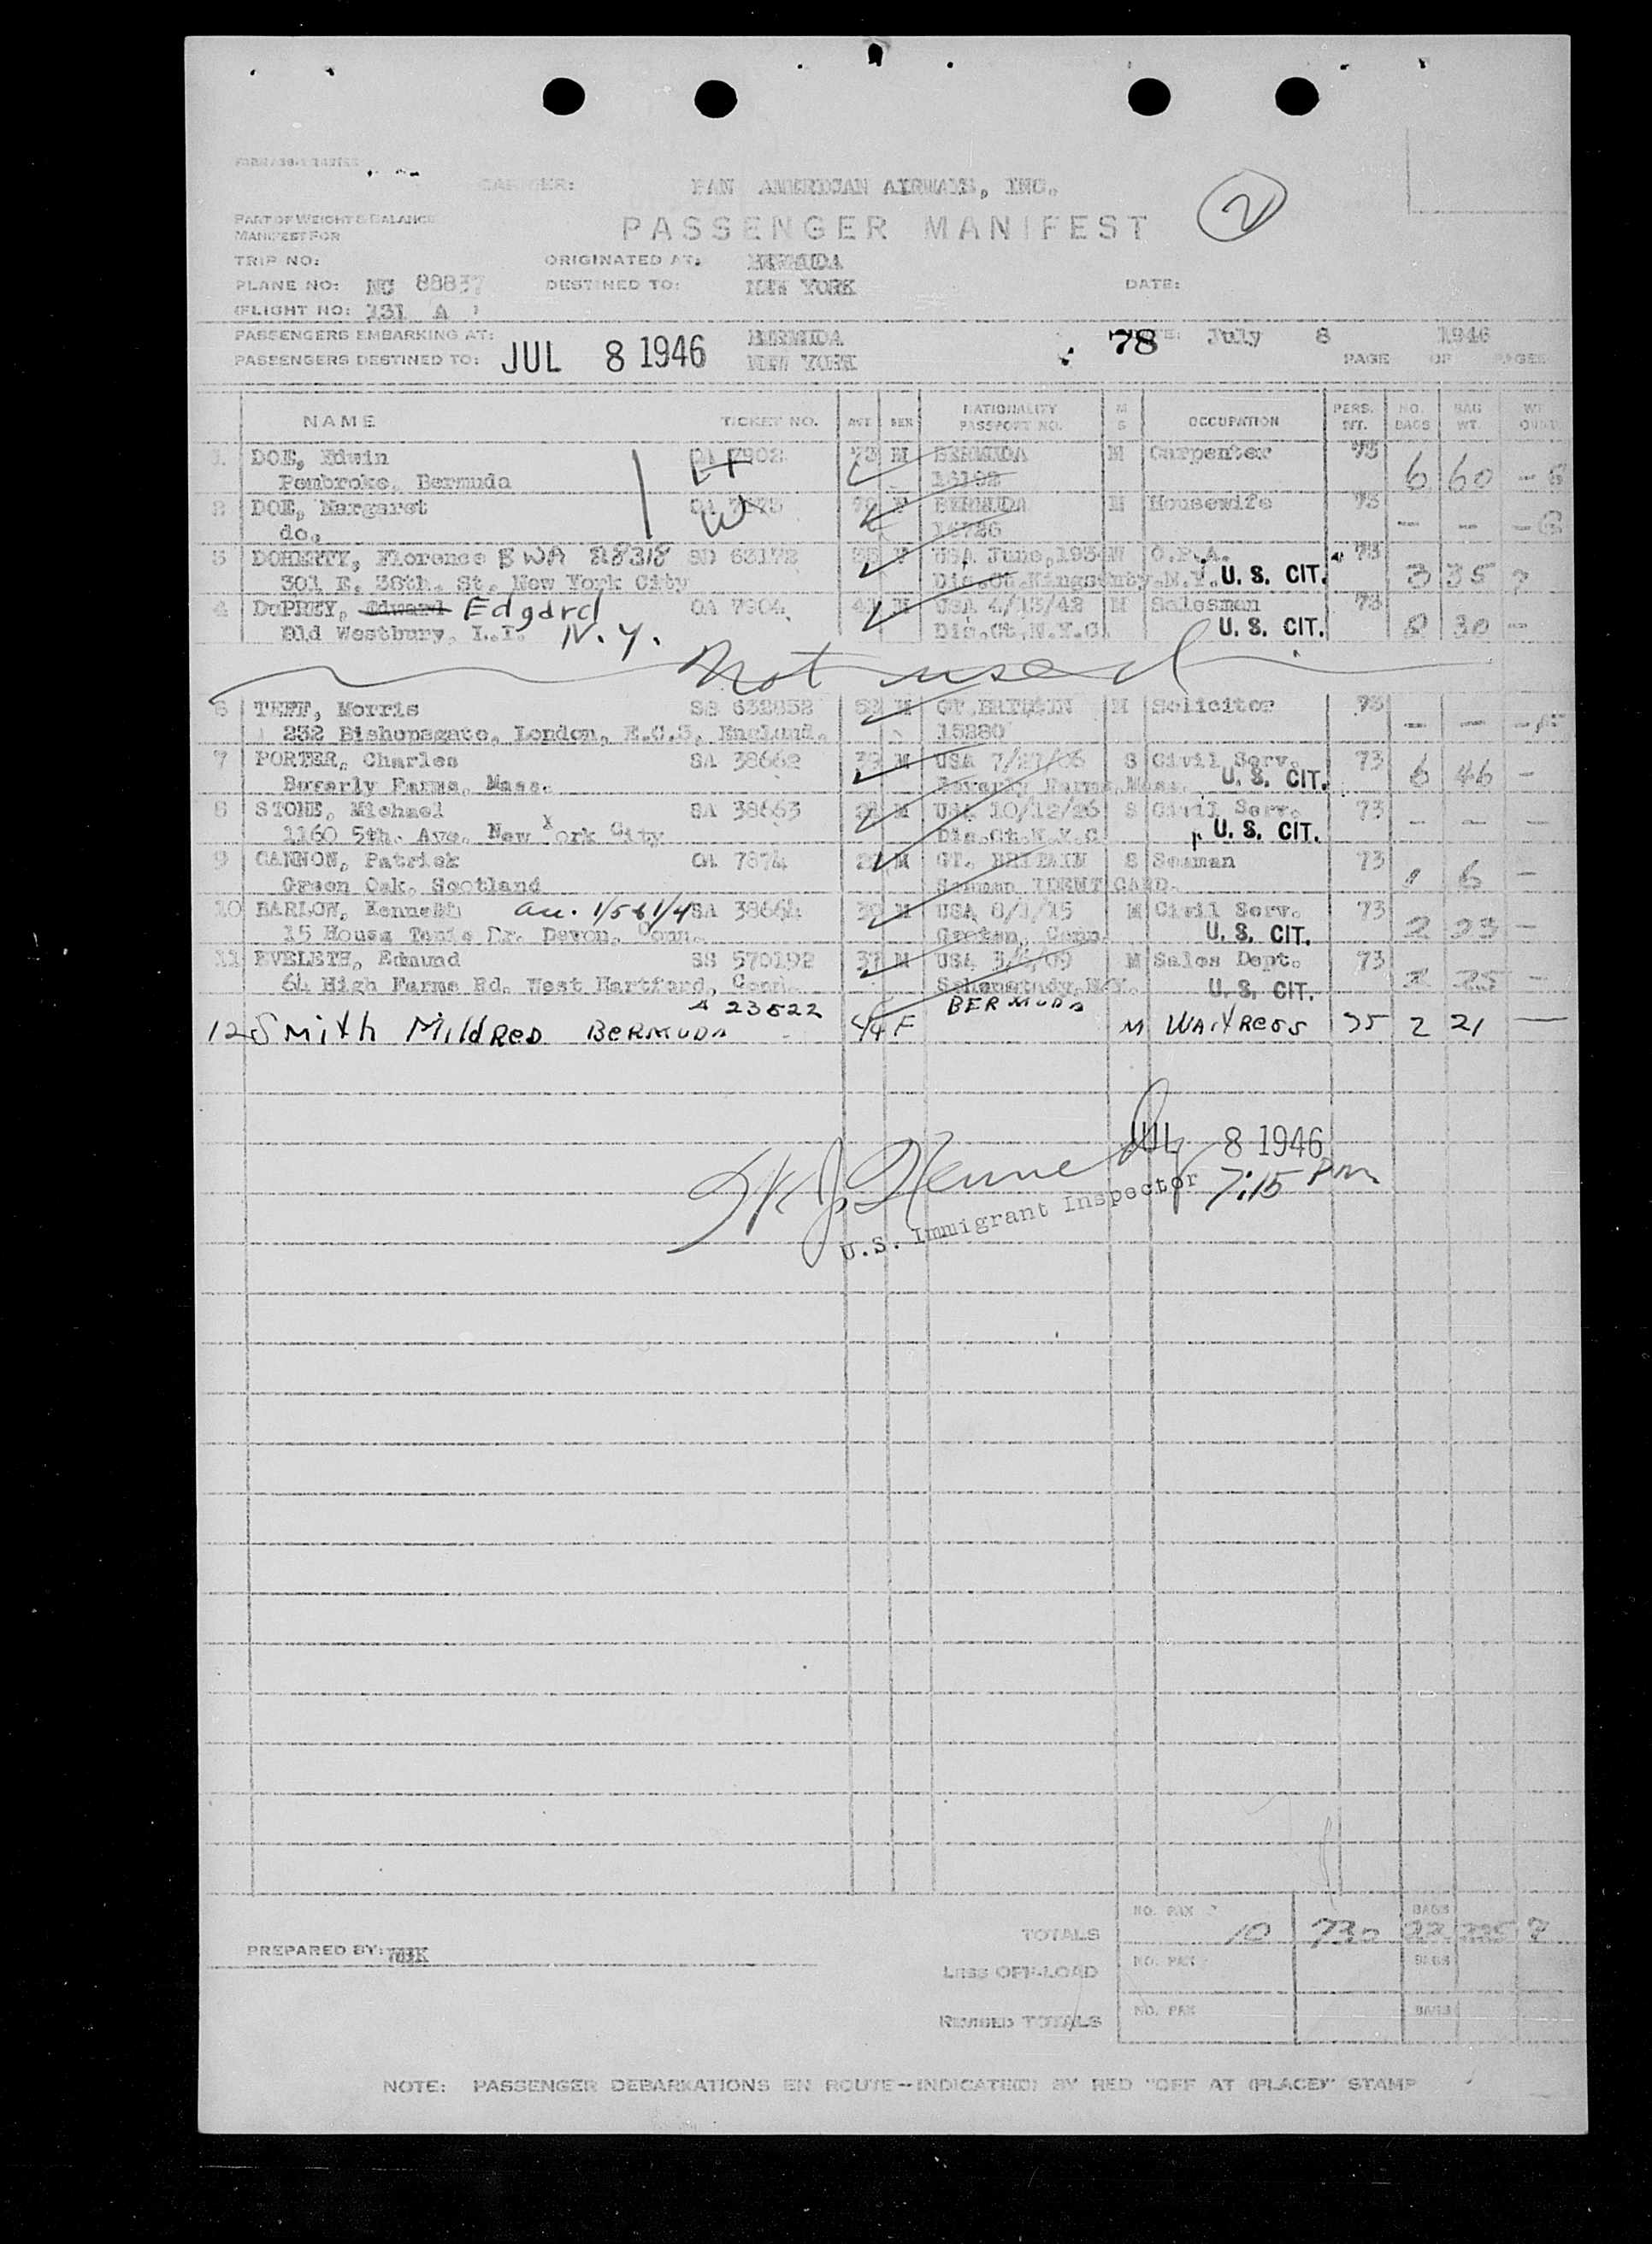 CARRIER: PAN AMERICAN AIRWAYS, INC.
PART OF WEIGHT & BALANCE
MANIFEST FOR
PASSENGER MANIFEST 2
TRIP NO: ORIGINATED AT: BERMUDA
PLANE NO: NC 88837 DESTINED TO: NEW YORK DATE:
FLIGHT NO: 131 A
PASSENGERS EMBARKING AT: BERMUDA 78 DATE: July 8 1946
PASSENGERS DESTINED TO: JUL 8 1946 NEW YORK PAGE OF PAGES
NAME TICKET NO. AGE SEX NATIONALITY PASSPORT NO. M S OCCUPATION PERS. WT. NO. BAGS BAG WT.
1 DOE, Edwin OA 7902 M BERMUDA M Carpenter 73 6 60 -
Pembroke, Bermuda
2 DOE, Margaret F BERMUDA M Housewife 73 - - -
do.
3 DOHERTY, Florence BWA 28318 SD 63172 F USA June, O.P.A. 73 3 35 ?
301 E. 38th. St. New York City N.Y. U. S. CIT.
4 DuPREY, Edward Edgard OA 7904 M USA 4/13/42 M Salesman 73 8 30 -
Old Westbury, L.I. N.Y. Dis.Ct.N.Y.C. U. S. CIT.
Not used
6 TEFF, Morris SB 632852 52 M GT.BRITAIN M Solicitor 73 - - -
232 Bishopsgate, London, E.C.3, England. 15280
7 PORTER, Charles SA 38662 39 M USA 7/27/06 S Civil Serv. 73 6 46 -
Beverly Farms, Mass. Beverly Farms, Mass. U. S. CIT.
8 STONE, Michael SA 38663 M USA 10/12/26 S Civil Serv. 73 - - -
1160 5th. Ave. New York City Dis.Ct.N.Y.C U. S. CIT.
9 CANNON, Patrick OA 7874 M GT. BRITAIN S Seaman 73 1 6 -
Green Oak, Scotland Seaman IDENT CARD.
10 BARLOW, Kenneth SA 38664 30 M USA M Civil Serv. 73 2 23 -
15 Housa Tonic Dr. Devon, Conn. Groton, Conn. U. S. CIT.
11 EVELETH, Edmund SS 570192 37 M USA M Sales Dept. 73 25 -
64 High Farms Rd. West Hartford, Conn. Schenectady, N.Y. U. S. CIT.
23522 BERMUDA
12 Smith Mildred BERMUDA 44 F M Waitress 35 2 21 -
JUL 8 1946
7:15 PM
U.S. Immigrant Inspector
NO. PAX BAGS
TOTALS 10 730
PREPARED BY:
NO. PAX BAGS
LESS OFF-LOAD
NO. PAX BAGS
REVISED TOTALS
NOTE: PASSENGER DEBARKATIONS EN ROUTE—INDICATED BY RED "OFF AT (PLACE)" STAMP